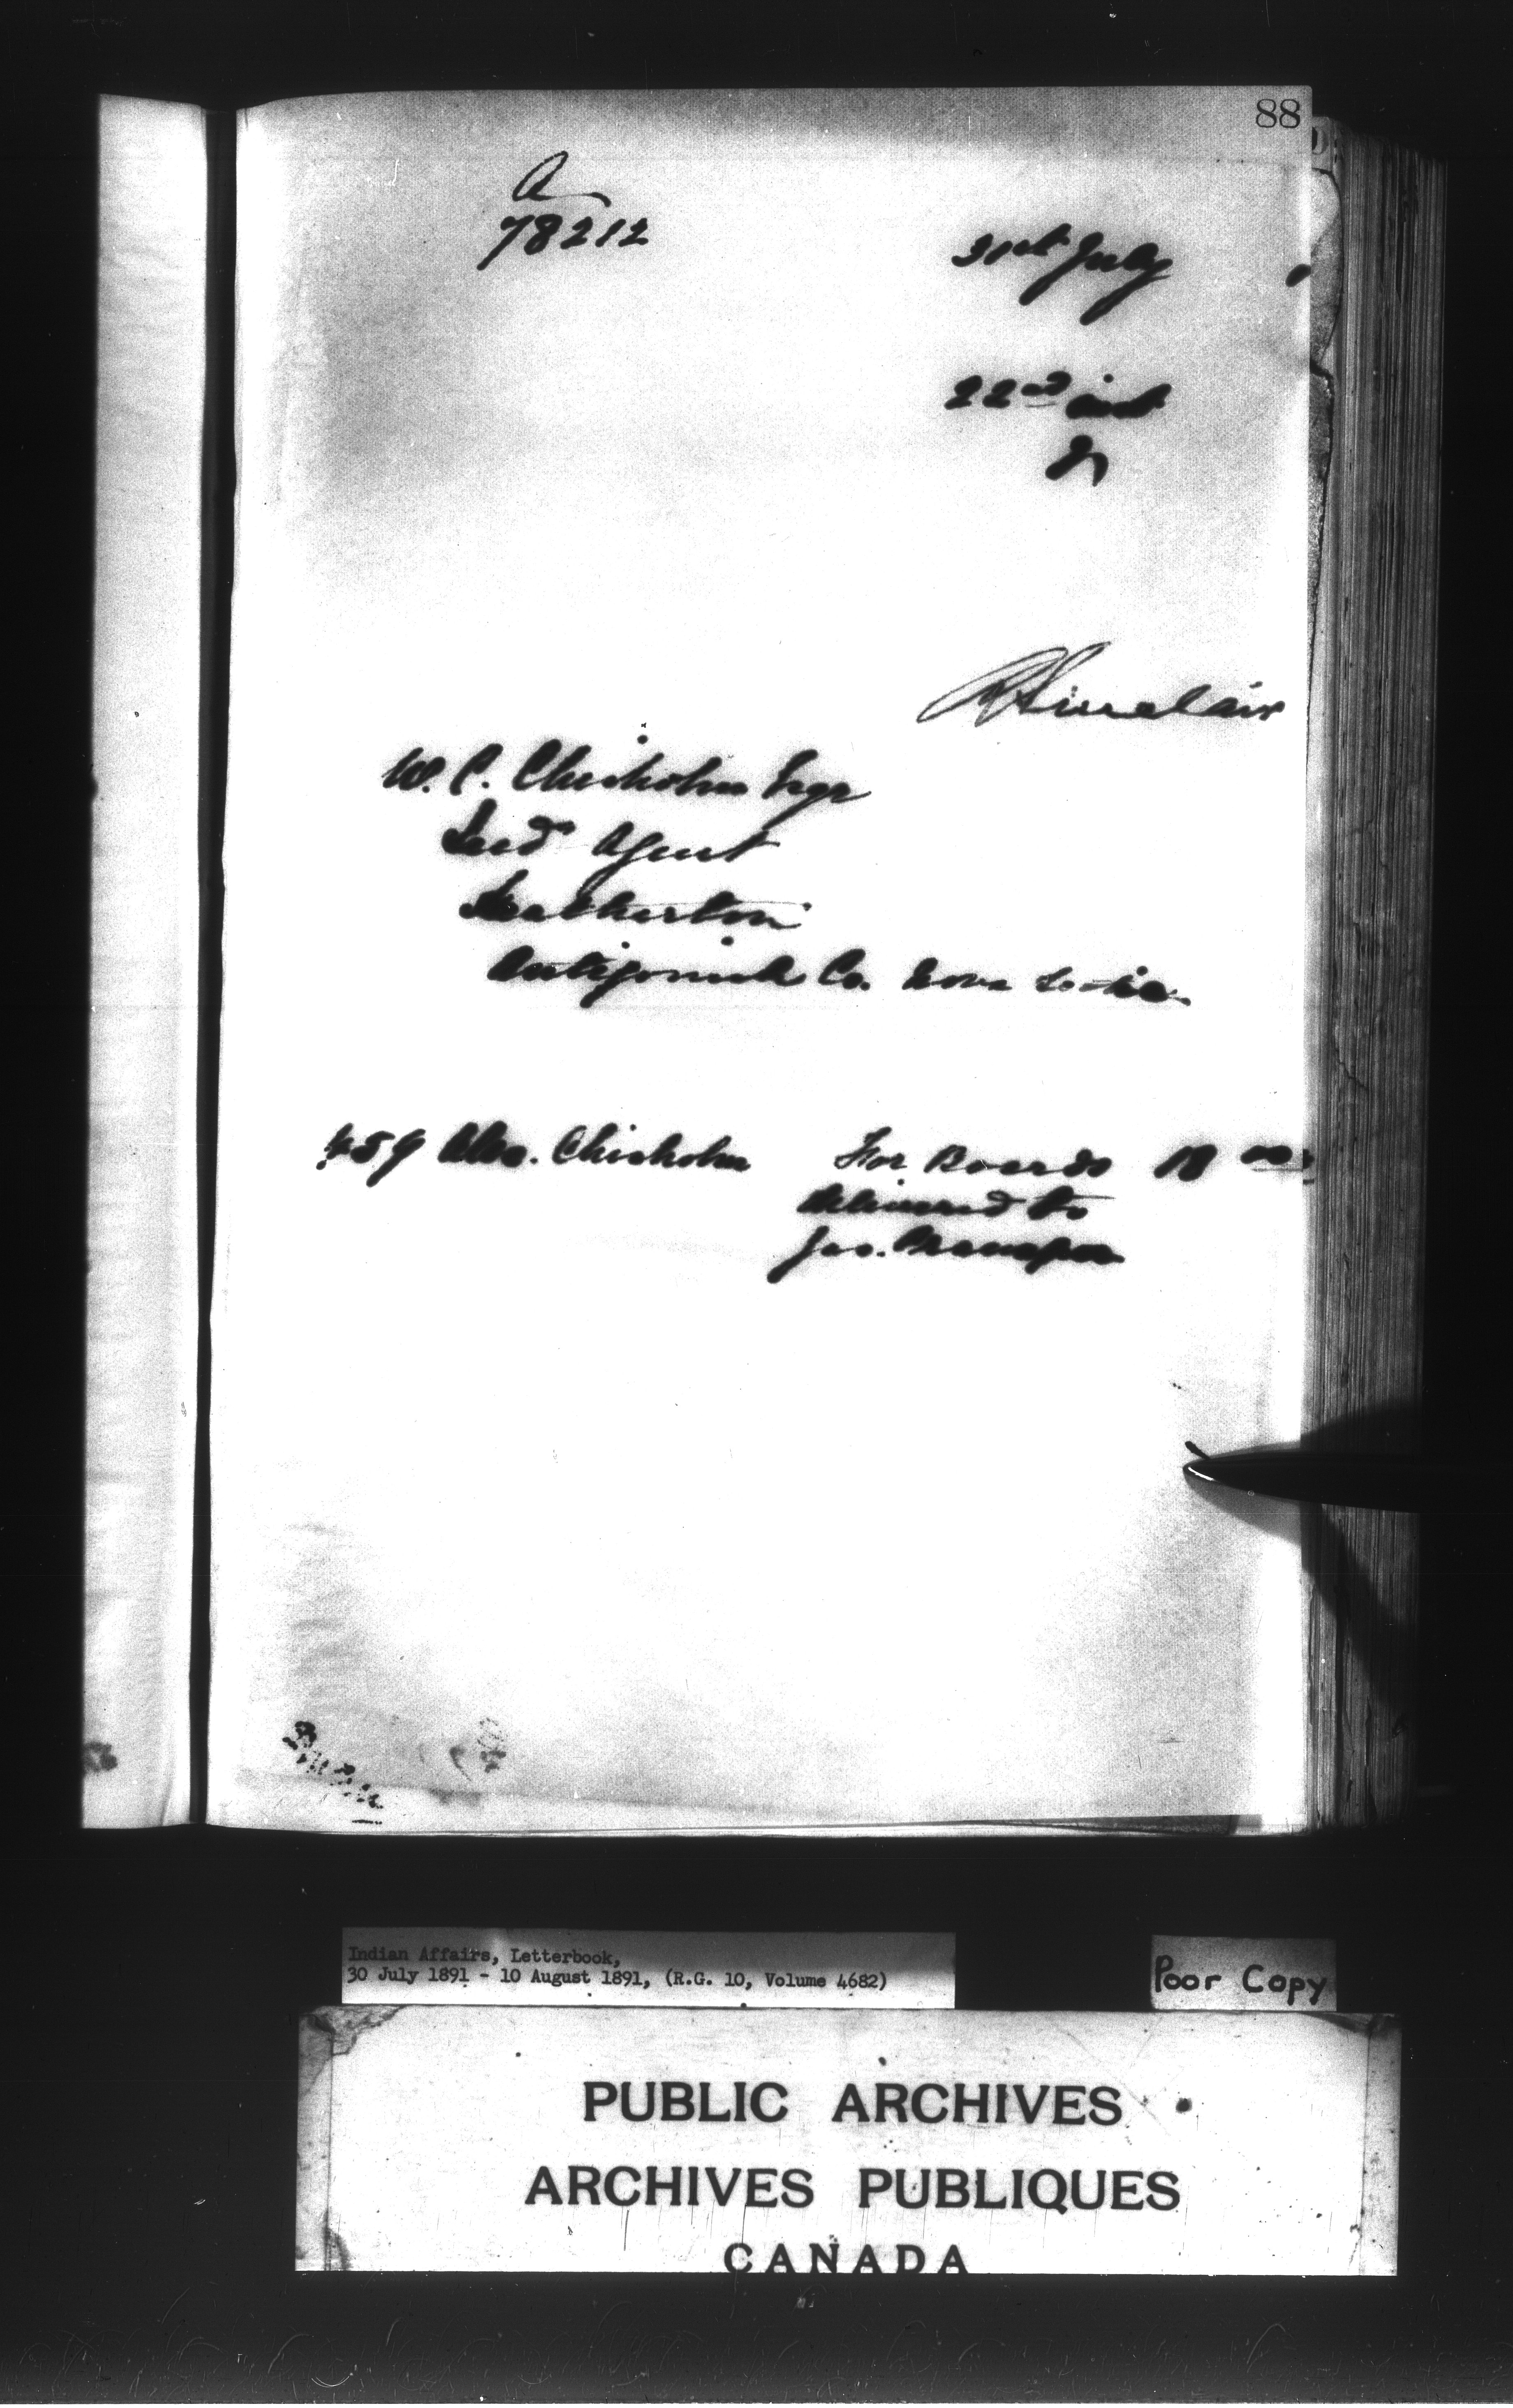 88
A
78212
31st July
22nd inst
R Sinclair
W. C. Chisholm Esqr
Ind Agent
Heatherton
Antigonish Co. Nova Scotia
459 Alex. Chisholm For Boards 18 00
delivered to
Jas.
Indian Affairs, Letterbook,
30 July 1891 - 10 August 1891, (R.G. 10, Volume 4682)
Poor Copy
PUBLIC ARCHIVES
ARCHIVES PUBLIQUES
CANADA